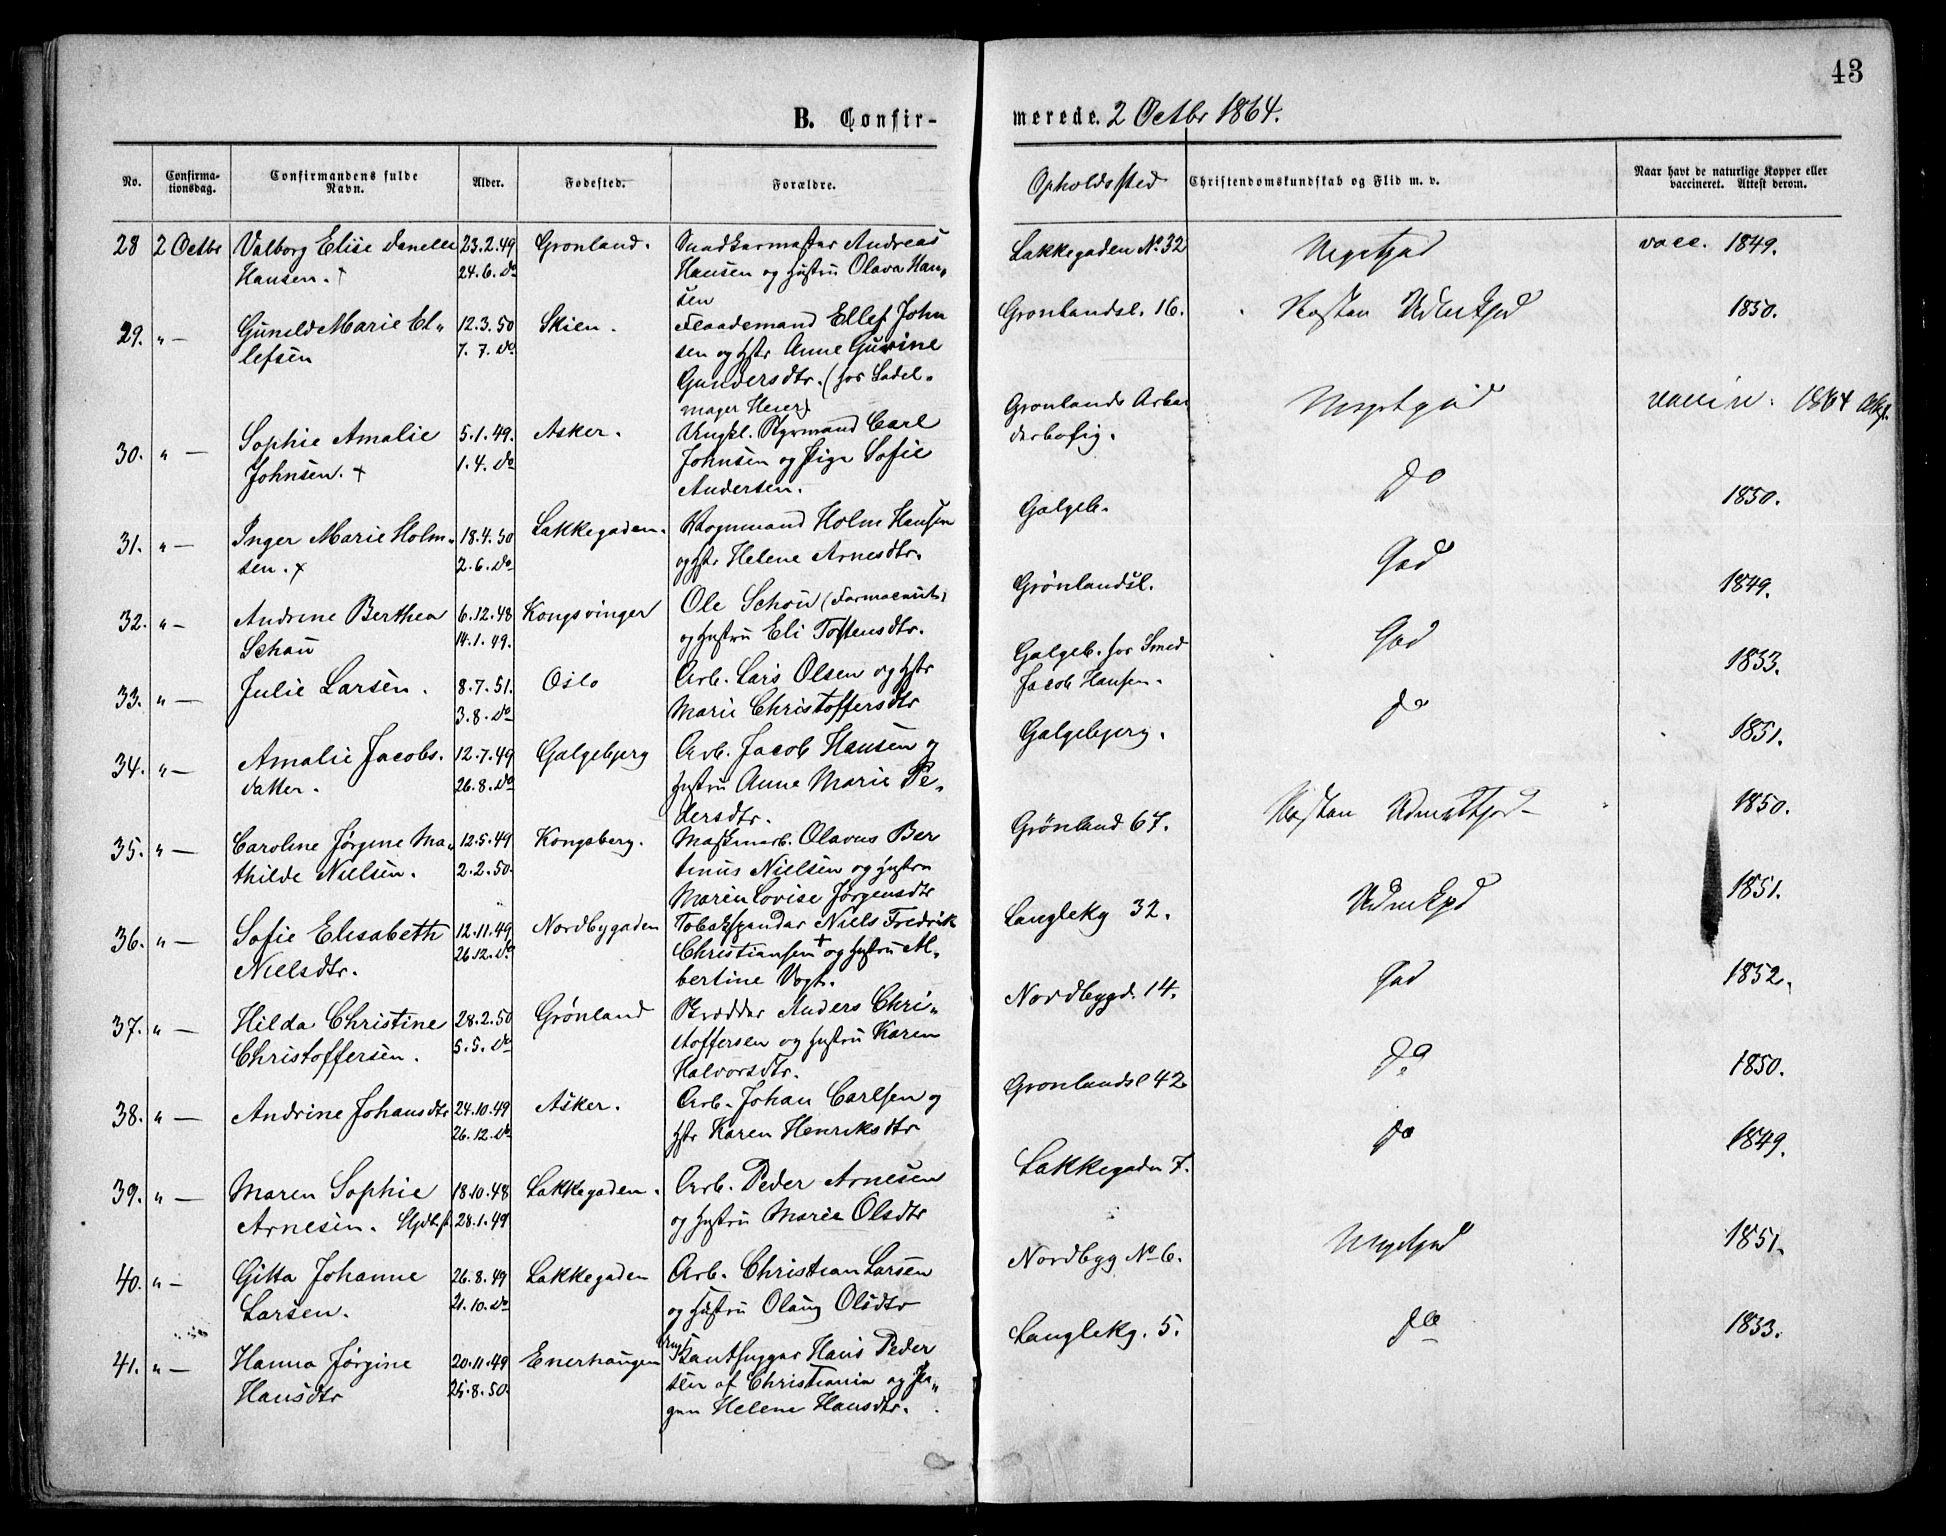 43
B. Confir-
merede. 2 Octbr 1864.
No.
Confirma-
tionsdag.
Confirmandens fulde
Navn.
Alder.
Fødested.
Forældre.
Opholdssted
Christendomskundskab og Flid m. v.
Naar havt de naturlige Kopper eller
vaccineret. Attest derom.
28 2 Octbr Valborg Elise 23.2.49 Grønland. Andreas
Hansen. † 24.6. do Hansen og Hustru Olava Han-
sen
Lakkegaden No. 32 Megetgod vacc. 1849.
29. " — Gunild Marie El- 12.3.50 Skien. Flaademand Ellef John
lefsen 7.7. do sen og Hstr Anne Gurine
Gundersdtr. (hos Sadel-
mager Heier)
Grønlandsl. 16. Næsten Udmkgod 1850.
30. " — Sophie Amalie 5.1.49. Asker. Ungkl. Styrmand Carl
Johnsen. + 1.4. do Johnsen og Pige Sofie
Andersen.
Grønlands Arbei
derbolig. Megetgod 1864
31. " — Inger Marie Holm- 18.4.50 Lakkegaden. Holm Hansen
sen. + 2.6. do og Hstr Helene Arnesdtr.
Galgeb. do 1850.
32. " — Andrine Berthea 6.12.48 Kongsvinger Ole Schou (Farmaceut)
Schou 14.1.49. og Hustru Eli Tostensdtr.
Grönlandsl. God 1849.
33. " — Julie Larsen. 8.7.51. Oslo Arb. Lars Olsen og Hstr
3.8. do Marie Christoffersdtr
Galgeb. hos Smed
Jacob Hansen. God 1853.
34. " — Amalie Jacobs. 12.7.49 Galgebjerg Arb. Jacob Hansen og
datter. 26.8. do Hustru Anne Marie Pe-
dersdtr.
Galgebjerg. do 1851.
35. " — Caroline Jørgine Ma- 12.5.49 Kongsberg. Maskinarb. Olavus Ber
thilde Nielsen. 2.2.50. tinus Nielsen og Hustru
Maren Lovise Jørgensdtr
Grönland 67. Næsten Udmætkgod 1850.
36. " — Sofie Elisabeth 12.11.49 Nordbygaden Tobakspinder Niels Fredrik
Nielsdtr. 26.12. do Christiansen + og Hustru Al-
bertine Vogt.
Langlekg 32. Udmkgd 1851.
37. " — Hilda Christine 28.2.50 Grønland Anders Chri-
Christoffersen. 5.5. do stoffersen og Hustru Karen
Halvorsdtr.
Nordbygd. 14. God 1852.
38. " — Andrine Johansdtr 24.10.49 Asker. Arb. Johan Carlsen og
26.12. do Hstr Karen Henriksdtr
Grønlandsl 42 do 1850.
39. " — Maren Sophie 18.10.48 Lakkegaden. Arb. Peder Arnesen
Arnesen. 28.1.49 og Hustru Marie Olsdtr
Lakkegaden 7. do 1849.
40. " — Gitta Johanne 26.8.49 Lakkegaden Arb. Christian Larsen
Larsen. 21.10. do og Hustru Olaug Olsdtr
Nordbyg No 6. Megetgod 1851.
41. " — Hanna Jørgine 20.11.49 Enerhaugen Hans Peder
Hansdtr 25.8.50. sen af Christiania og Pi-
gen Helene Hansdtr.
Langlekg. 5. do 1853.